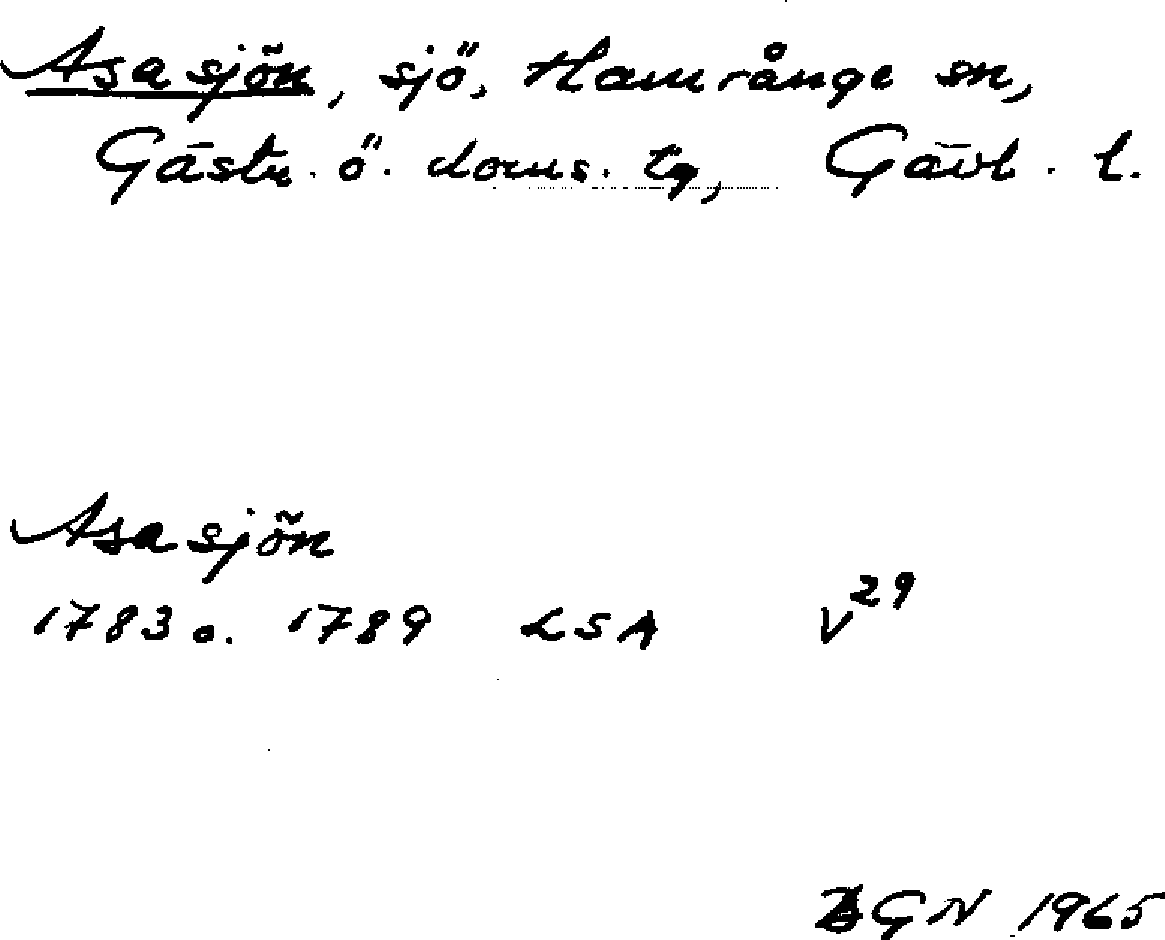 Asasjön, sjö, Hamrånge sn,
Gästr. ö. doms. tg, Gävl. l.
Asasjön
1783 o. 1789 LSA V29
GN 1965